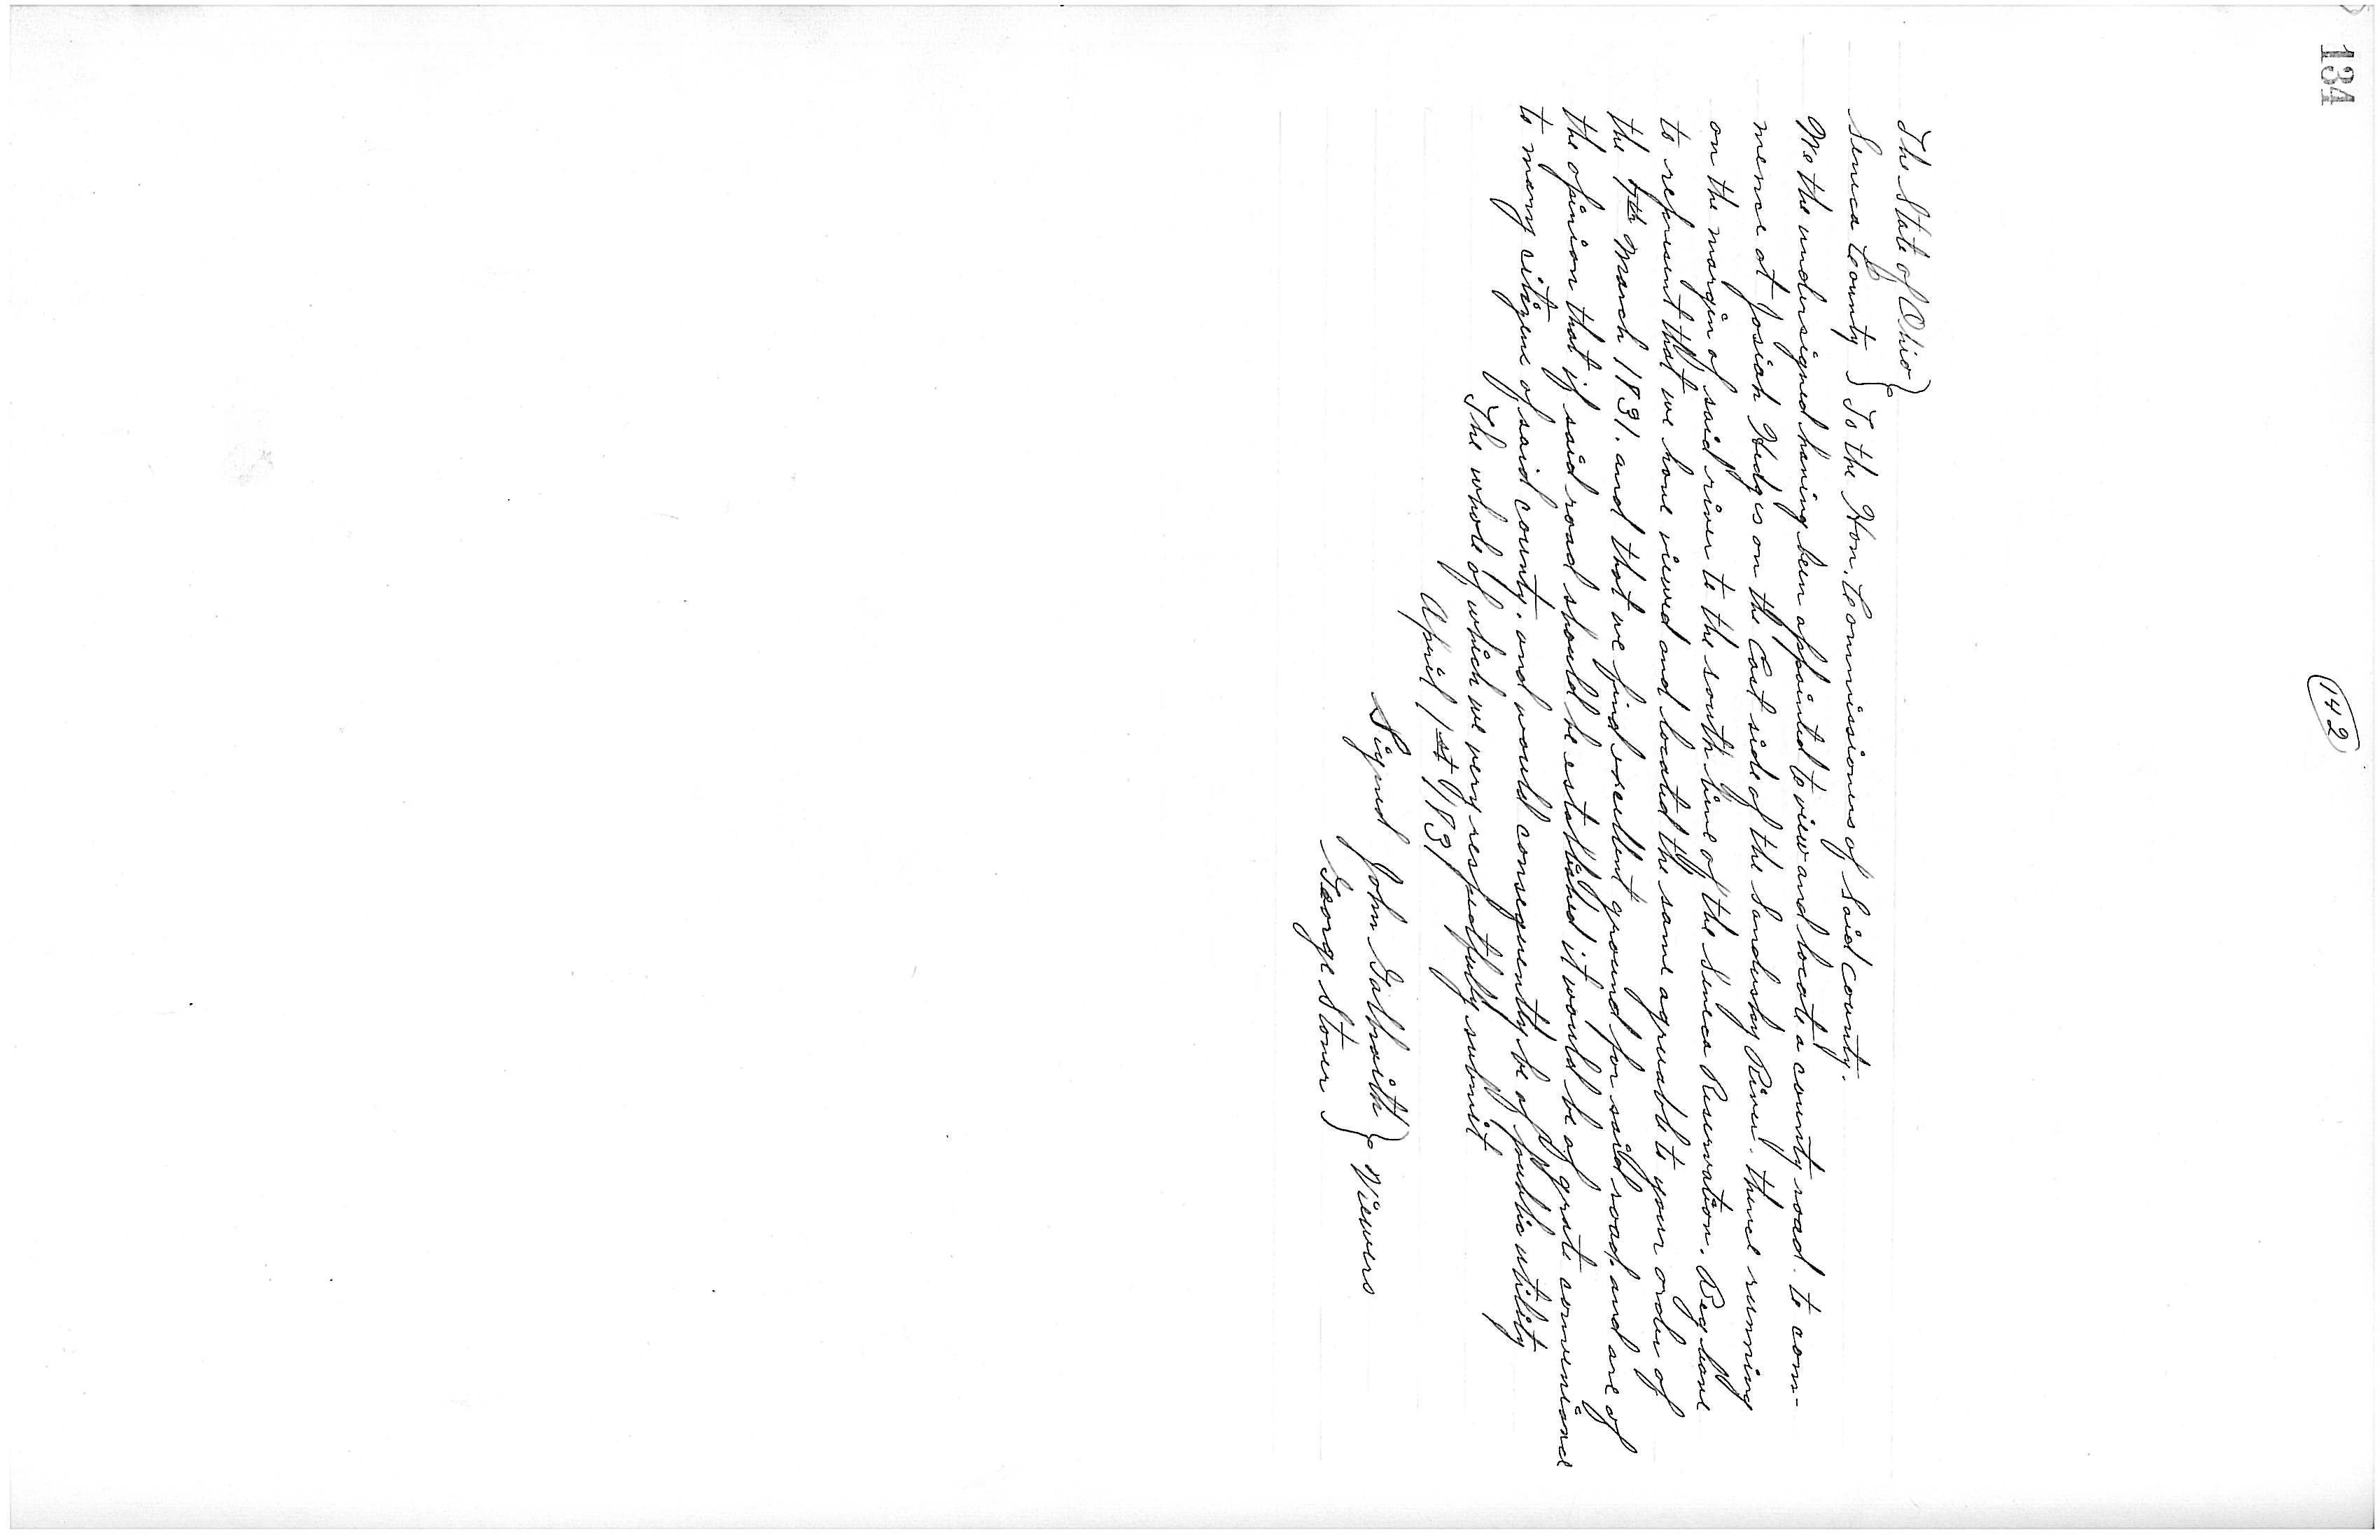 134
142
The State of Ohio }
Seneca County } To the Hon. Commissioners of Said County.
We the undersigned having been appointed to view and locate a county road. to com-
mence at Josiah Hedges on the East side of the Sandusky River. thence running
on the margin of said river to the south line of the Seneca Reservation. Beg leave
to represent that we have viewed and located the same agreeable to your order of
the 7th March 1831. and that we find excellent ground for said road. and are of
the opinion that if said road should be established it would be of grate convenience
to many citizens of said county. and would consequently be of public utility
The whole of which we very respectfully submit
April 1st 1831
Signed John Galbraith }
George Stoner } Viewers